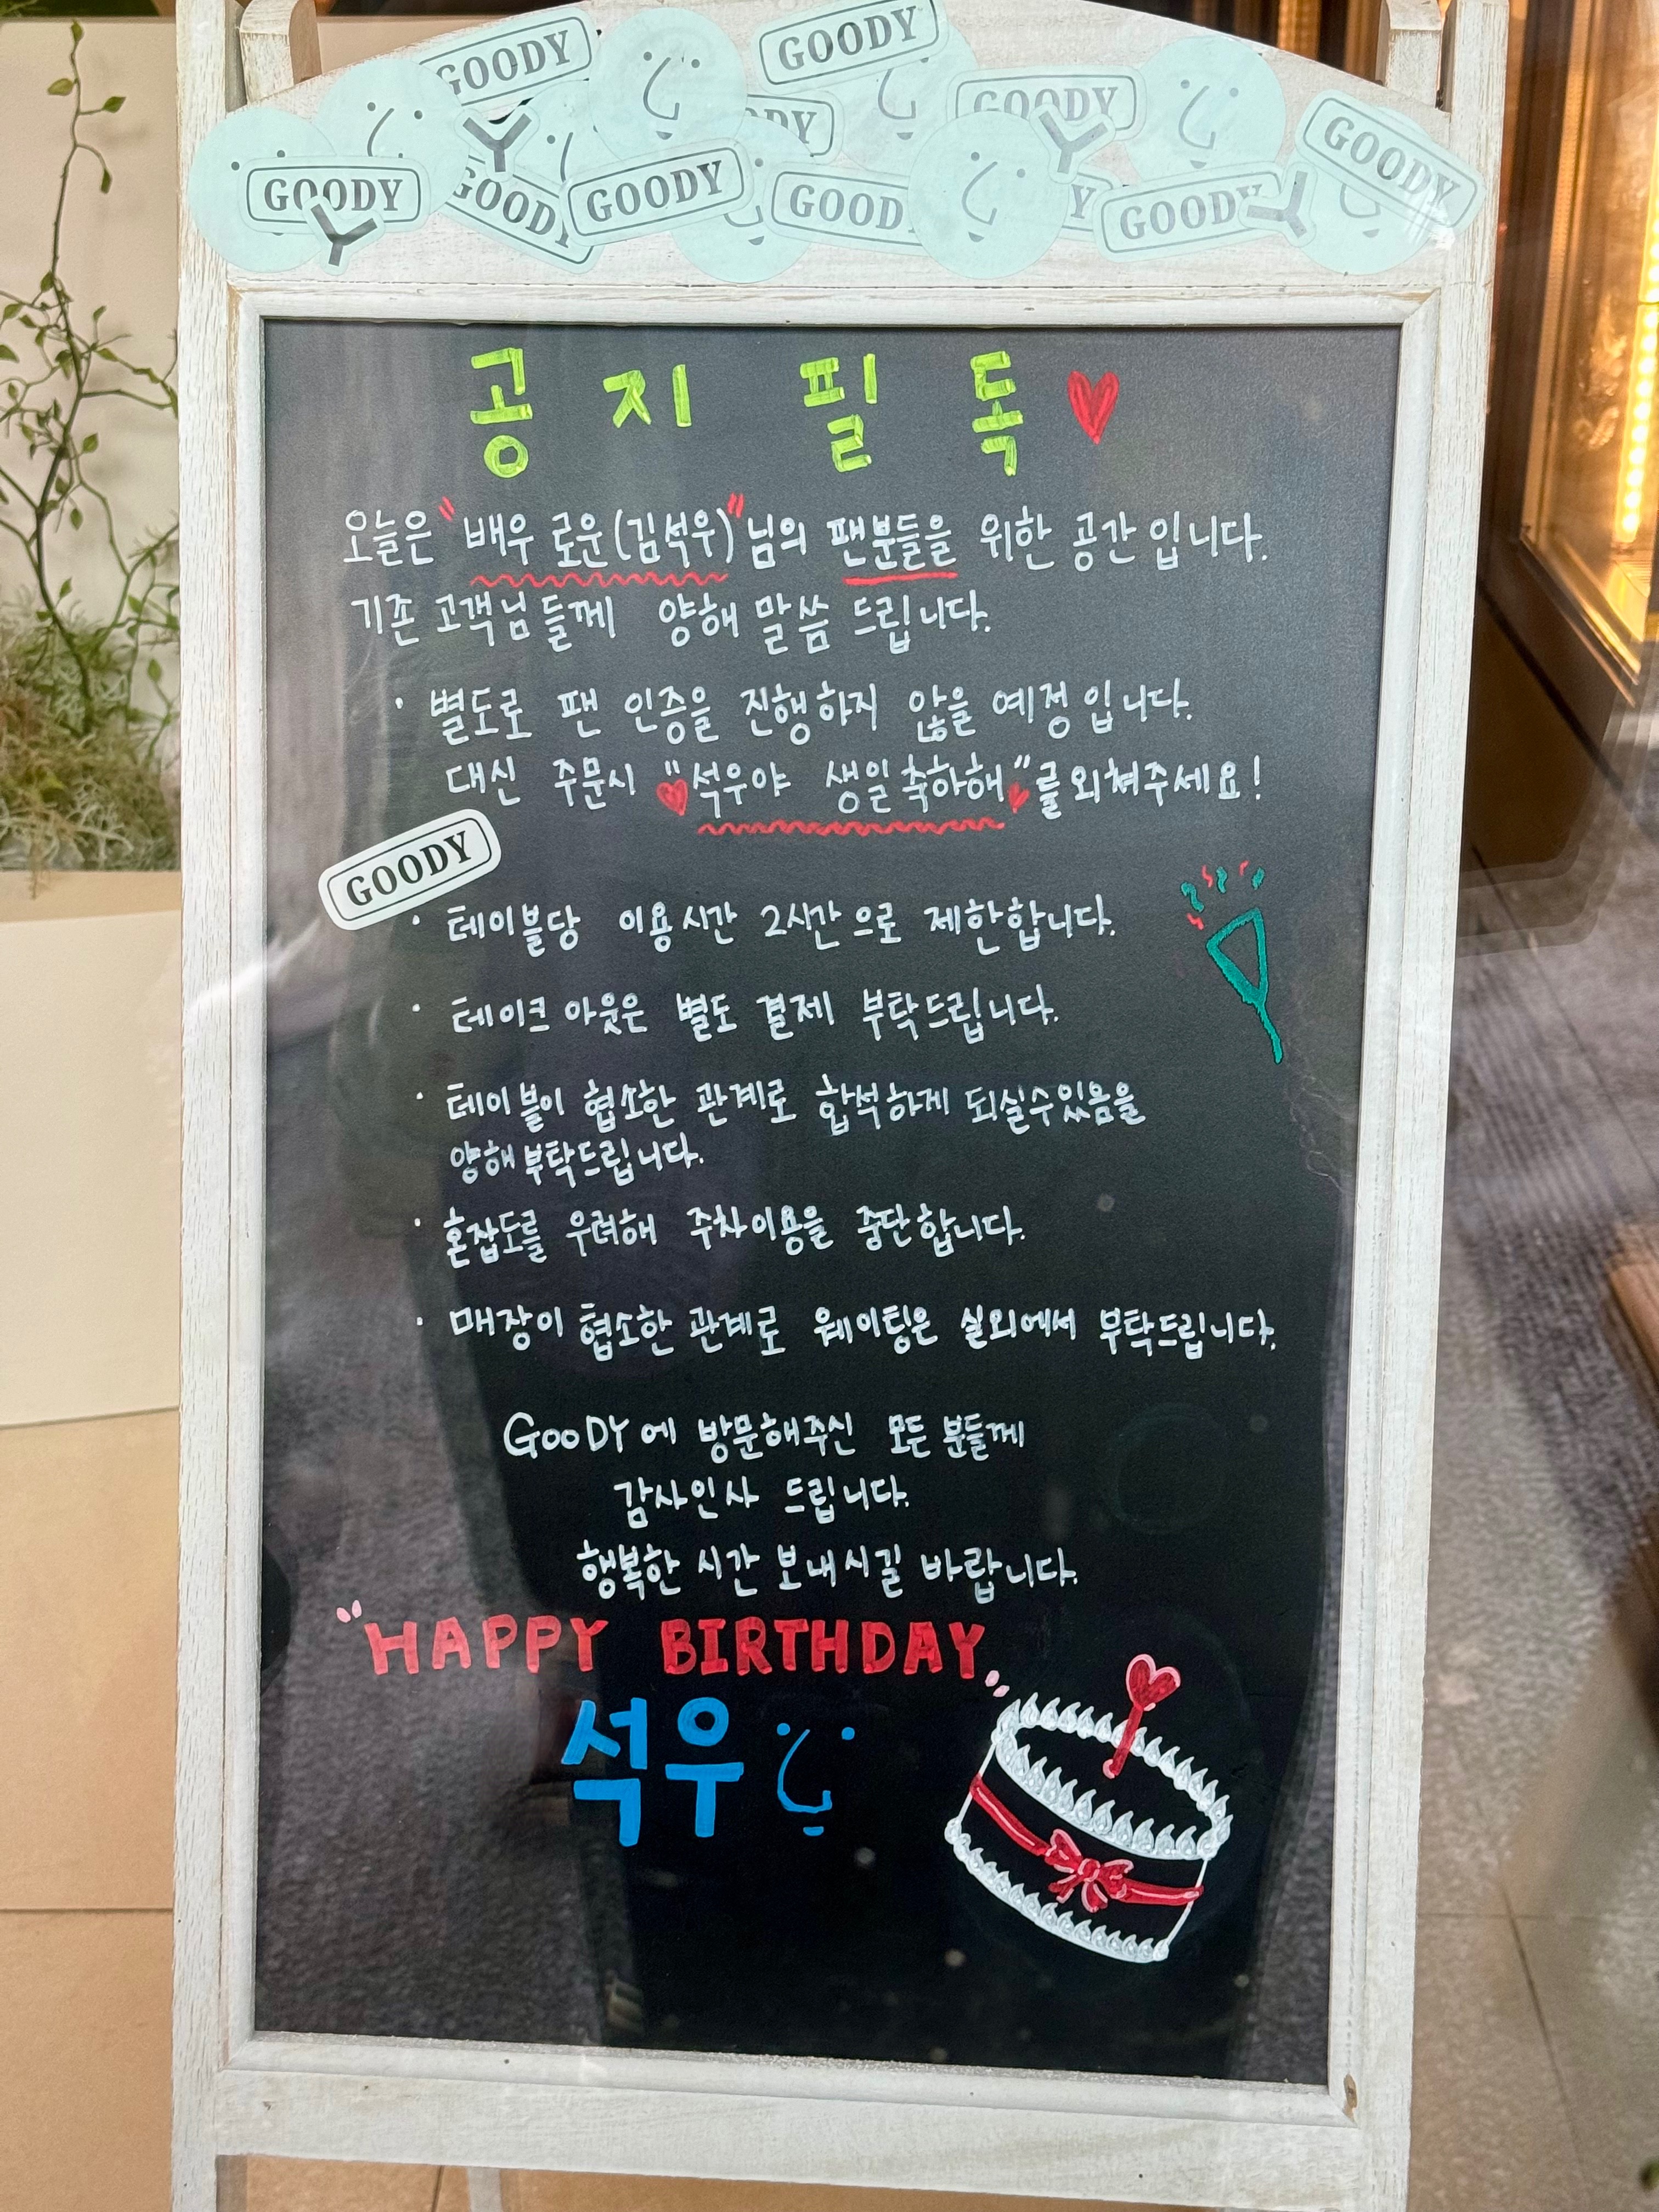 GOODY
GOODY
GOODY
GOODY
GOODY
GOODY
GOODY
GOODY
공지 필독
오늘은 "배우 로운(김석우)"님의 팬분들을 위한 공간입니다.
기존 고객님들께 양해 말씀 드립니다.
· 별도로 팬 인증을 진행하지 않을 예정입니다.
대신 주문시 "석우야 생일축하해"를 외쳐주세요!
GOODY
· 테이블당 이용시간 2시간으로 제한합니다.
· 테이크 아웃은 별도 결제 부탁드립니다.
· 테이블이 협소한 관계로 합석하게 되실수있음을
양해부탁드립니다.
· 혼잡도를 우려해 주차이용을 중단합니다.
· 매장이 협소한 관계로 웨이팅은 실외에서 부탁드립니다.
GOODY에 방문해주신 모든 분들께
감사인사 드립니다.
행복한 시간 보내시길 바랍니다.
"HAPPY BIRTHDAY"
석우